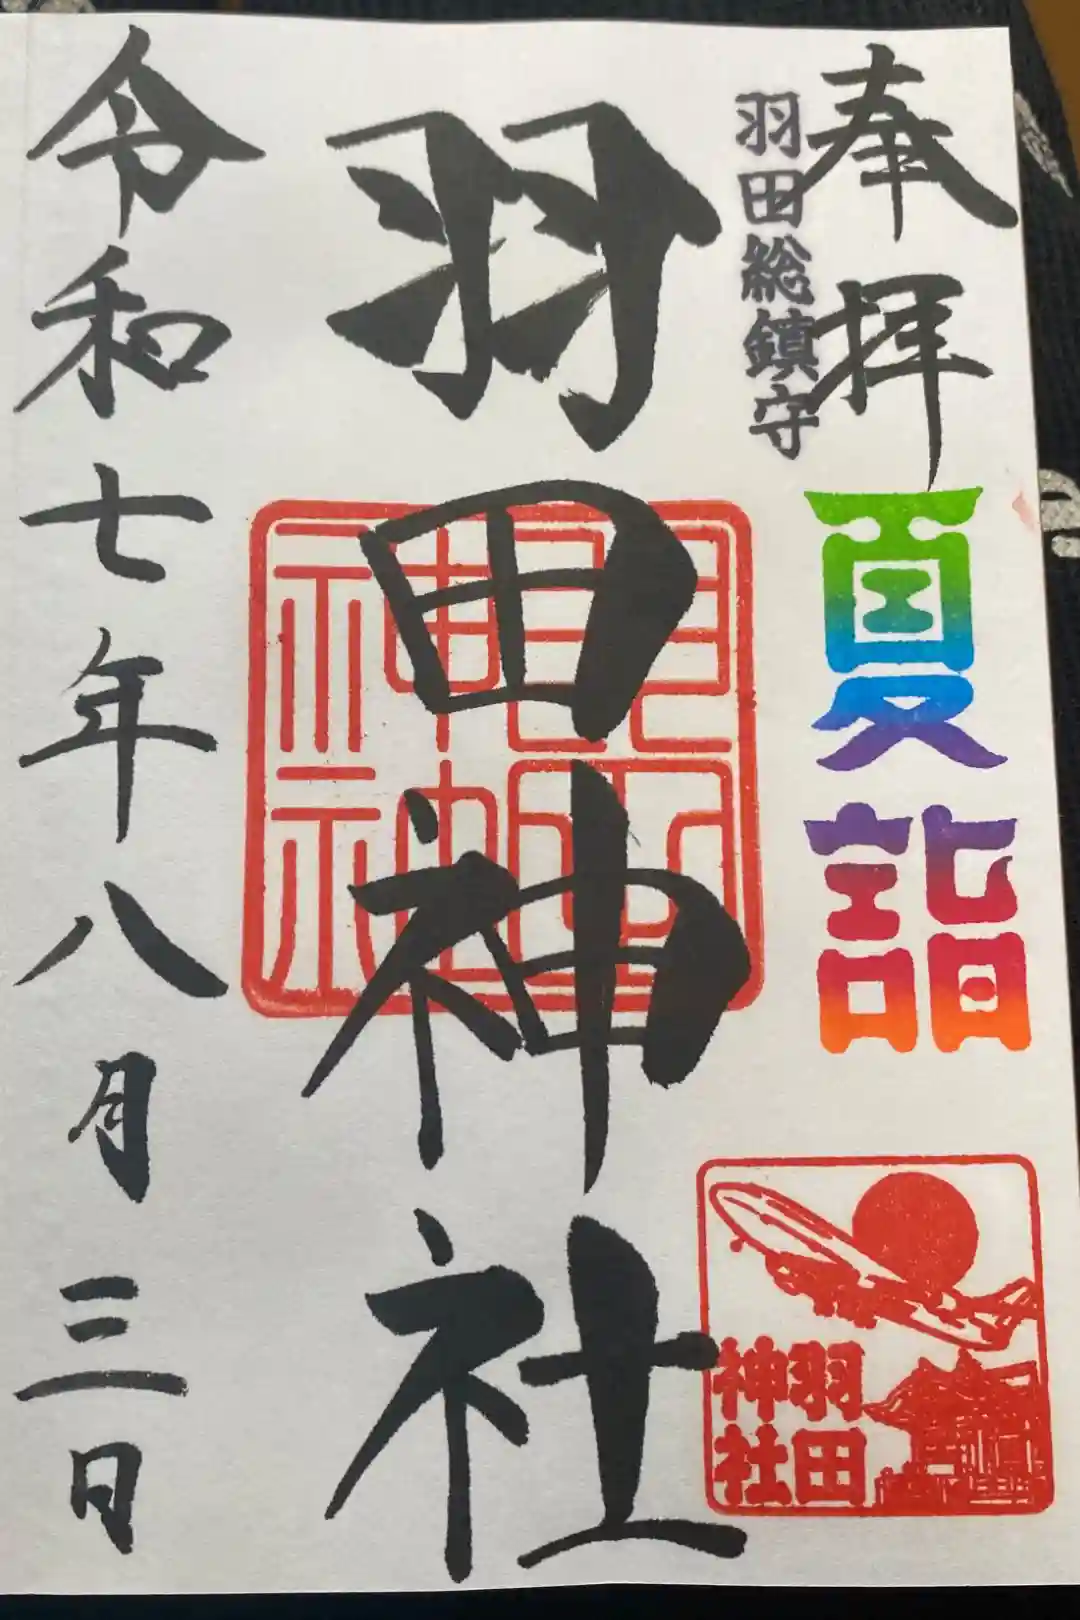 奉拝
羽田総鎮守
夏詣
羽田
神社
羽田神社
令和七年八月三日